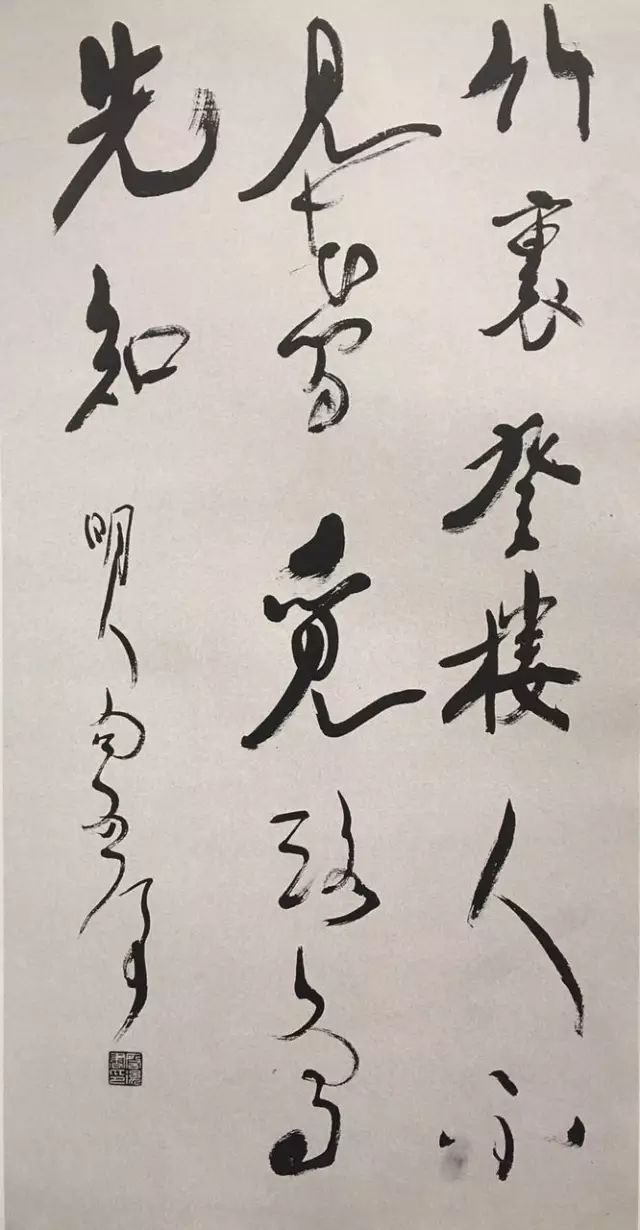 竹裏登樓人不
見花間覓路鳥
先知 明人句